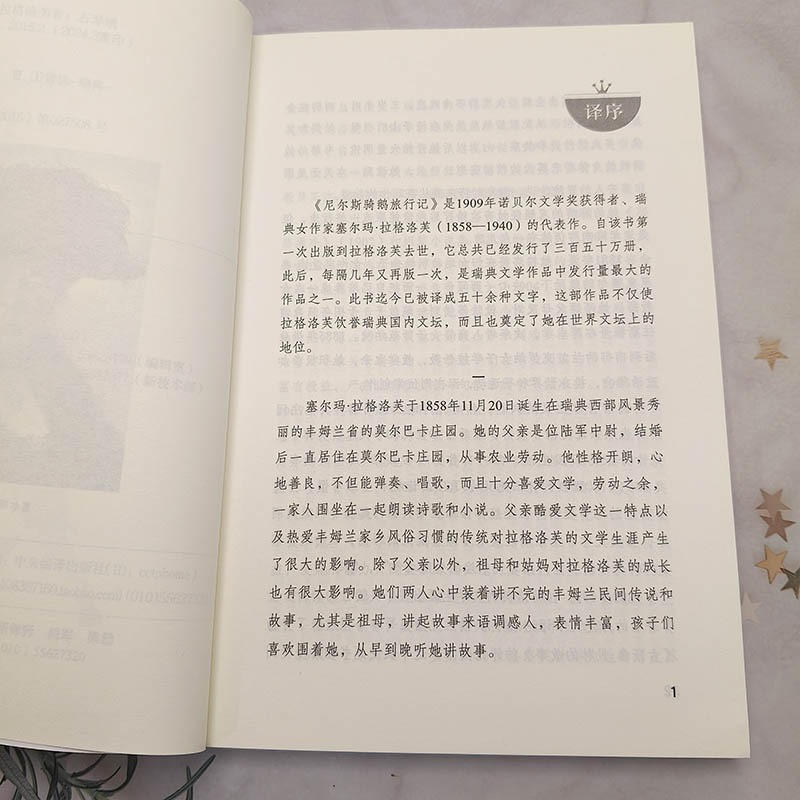 译序
《尼尔斯骑鹅旅行记》是1909年诺贝尔文学奖获得者、瑞
典女作家塞尔玛·拉格洛芙（1858—1940）的代表作。自该书第
一次出版到拉格洛芙去世，它总共已经发行了三百五十万册，
此后，每隔几年又再版一次，是瑞典文学作品中发行量最大的
作品之一。此书迄今已被译成五十余种文字，这部作品不仅使
拉格洛芙饮誉瑞典国内文坛，而且也奠定了她在世界文坛上的
地位。
一
塞尔玛·拉格洛芙于1858年11月20日诞生在瑞典西部风景秀
丽的丰姆兰省的莫尔巴卡庄园。她的父亲是位陆军中尉，结婚
后一直居住在莫尔巴卡庄园，从事农业劳动。他性格开朗，心
地善良，不但能弹奏、唱歌，而且十分喜爱文学，劳动之余，
一家人围坐在一起朗读诗歌和小说。父亲酷爱文学这一特点以
及热爱丰姆兰家乡风俗习惯的传统对拉格洛芙的文学生涯产生
了很大的影响。除了父亲以外，祖母和姑妈对拉格洛芙的成长
也有很大影响。她们两人心中装着讲不完的丰姆兰民间传说和
故事，尤其是祖母，讲起故事来语调感人，表情丰富，孩子们
喜欢围着她，从早到晚听她讲故事。
1